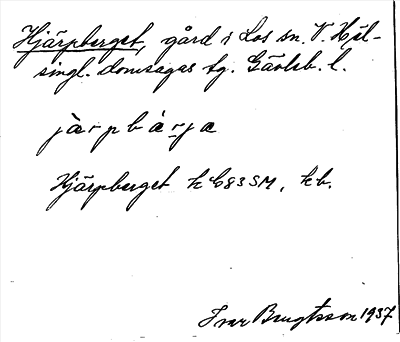 Hjärpberget, gård i Los sn. V. Häl-
singl. domsagas tg. Gävleb. l.
jàrpbárja
Hjärpberget kC83SM, kb.
Ivar Bengtsson 1937